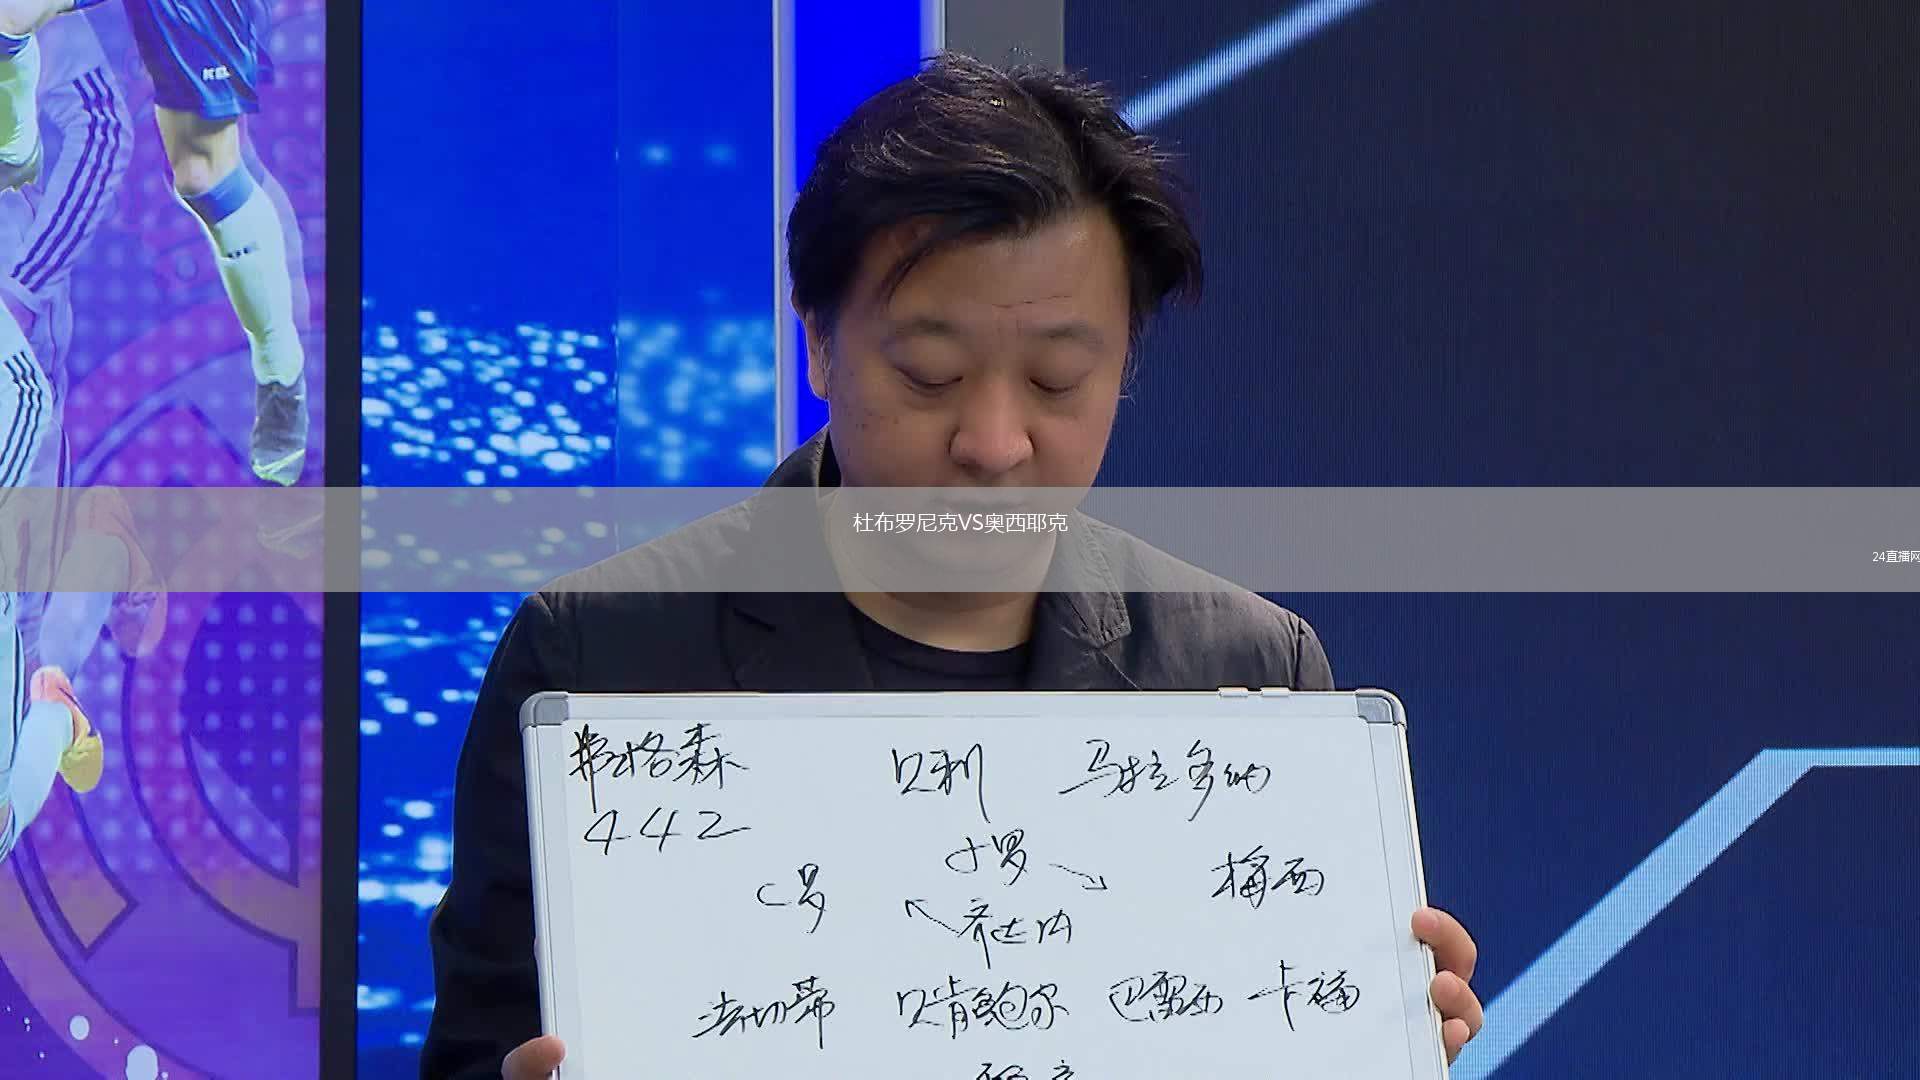 杜布罗尼克VS奥西耶克
24直播网
弗格森 贝利 马拉多纳
442
小罗
C罗 梅西
齐达内
法切蒂 贝肯鲍尔 巴雷西 卡福